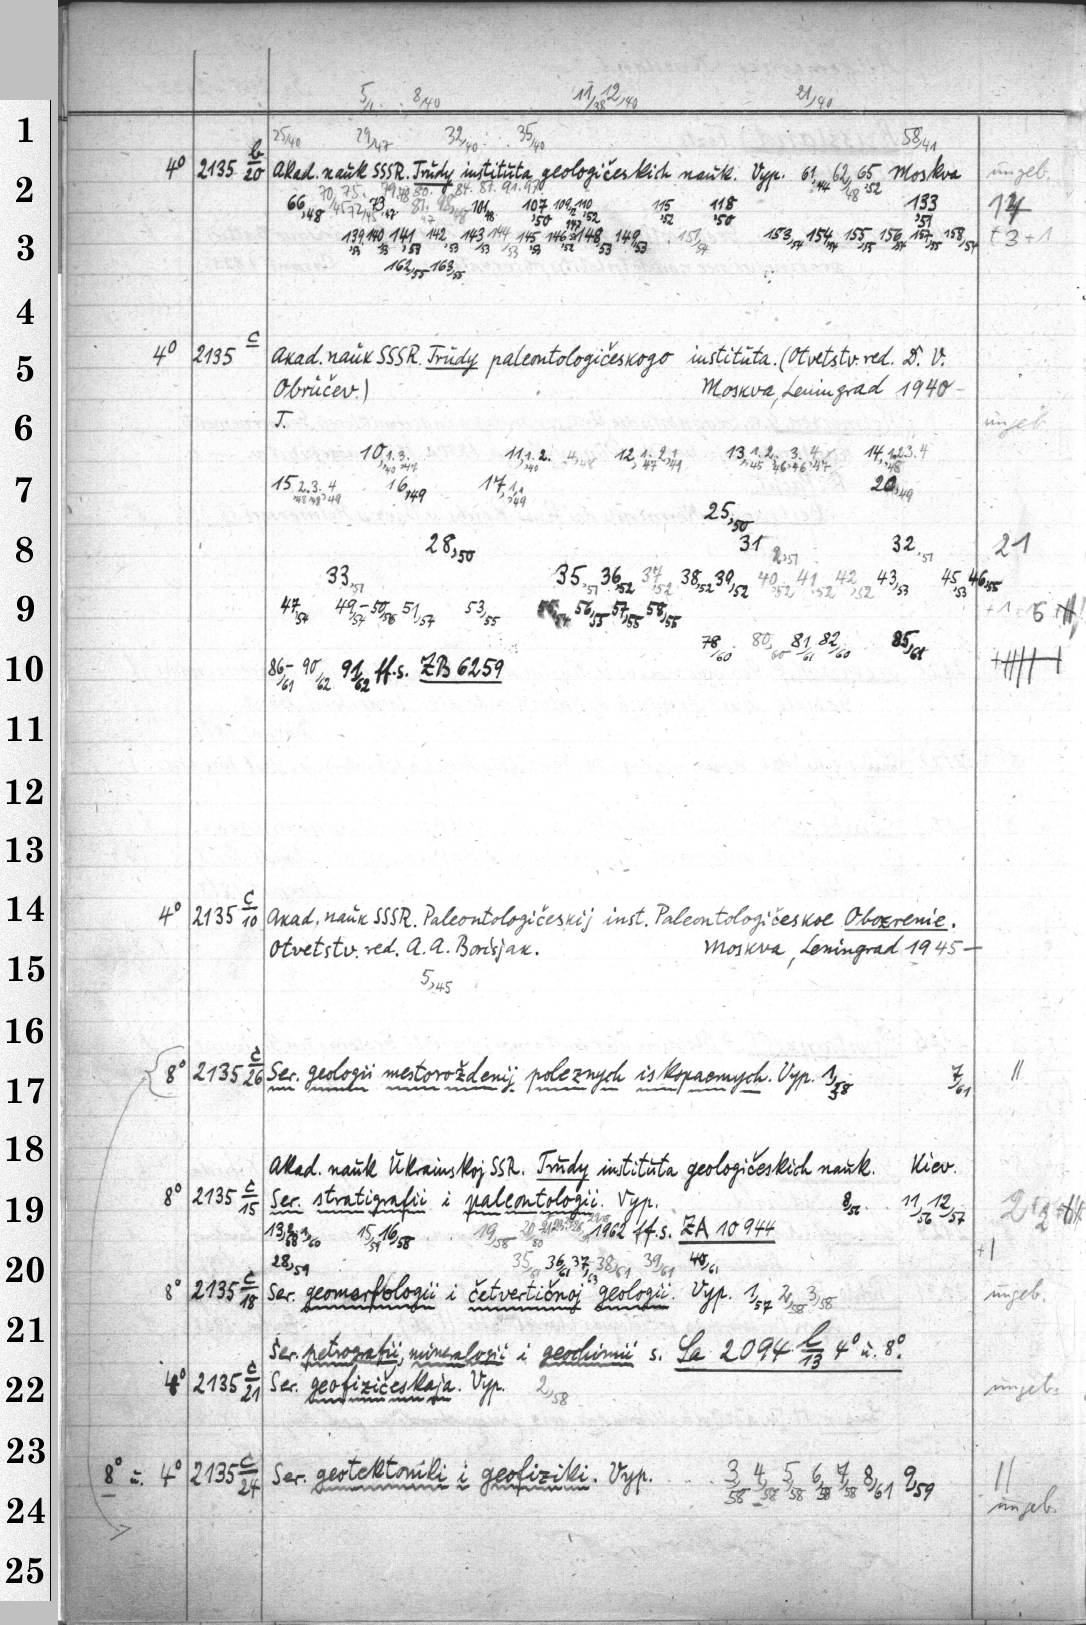 5/1. 8/40 11/38 12/40 21/40
25/40 29/47 32/40 35/40 58/41
4° 2135 b/20 Akad. naŭk SSSR. Trŭdy institŭta geologičeskich naŭk. Vyp. 61,44 62,48 65,52 Moskva ungeb.
66,48 107,50 115,52 118,50 133,51
139,53 140,53 141,53 142,53 143,53 144,53 145,53 146,52 148,53 149,53 151,54 153,54 154,54 155,55 156,54 157,55 158,54 +3+1
162,55 163,55
4° 2135 c Akad. naŭk SSSR. Trŭdy paleontologičeskogo institŭta. (Otvetstv. red. D. V.
Obrŭčev.) Moskva, Leningrad 1940-
T. ungeb.
10,1.3. 11,1.2. 12,1.2. 13,1.2.3.4 14,1.2.3.4
15 2.3.4 16,49 17,1 20,49
25,50
28,50 31 2,51 32,51 21
33,51 35,51 36,52 37,52 38,52 39,52 40,52 41,52 42,52 43,53 45,53 46,55
47,54 49,57-50,56 51/57 53/55 56,55 57,55 58,55
78/60 80/60 81/61 82/60 85/61
86/61-90/62 91/62 ff. s. ZB 6259
4° 2135 c/10 Akad. naŭk SSSR. Paleontologičeskij inst. Paleontologičeskoe Obozrenie.
Otvetstv. red. A. A. Borisjak. Moskva, Leningrad 1945-
5,45
8° 2135 c/26 Ser. geologii mestoroždenij poleznych iskopaemych. Vyp. 1/58 7/61 ||
Akad. naŭk Ŭkrainskoj SSR. Trŭdy institŭta geologičeskich naŭk. Kiev.
8° 2135 c/15 Ser. stratigrafii i paleontologii. Vyp. 8/56 11/56 12/57
15/59 16/58 19/58 1962 ff. s. ZA 10 944
+1
28/59 35/61 36/61 37/63 38/61 39/61 40/61
8° 2135 c/18 Ser. geomorfologii i četvertičnoj geologii. Vyp. 1/57 2/58 3/58 ungeb.
Ser. petrografii, mineralogii i geochimii s. La 2094 l/13 4° u. 8°.
4° 2135 c/21 Ser. geofizičeskaja. Vyp. 2,58 ungeb.
8° u. 4° 2135 c/24 Ser. geotektoniki i geofiziki. Vyp. 3/58 4/58 5/58 6/58 7/58 8/61 9/59 ||
ungeb.
1
2
3
4
5
6
7
8
9
10
11
12
13
14
15
16
17
18
19
20
21
22
23
24
25